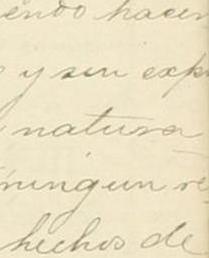 endo hacer
y sin exp
natura
ningun re-
hechos de